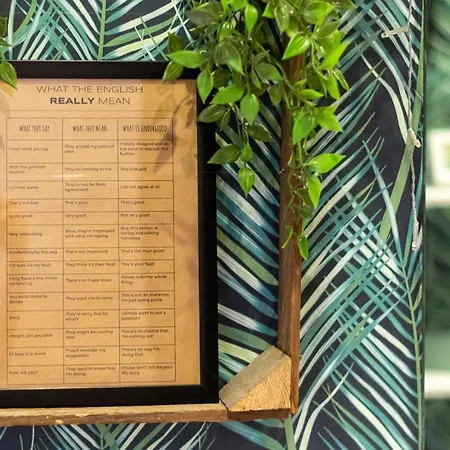 WHAT THE ENGLISH
REALLY MEAN
WHAT THEY SAY WHAT THEY MEAN WHAT IS UNDERSTOOD
I hear what you say They accept my point of view I totally disagree and do not want to discuss this further
With the greatest respect They're listening to me This is stupid
I almost agree They're not far from agreement I do not agree at all
That's not bad That's poor That's good
Quite good Very good Not very good
Very interesting Wow, they're impressed with what I'm saying Boy, this person is boring and talking nonsense
Incidentally/by the way That's not important That's the main point
I'm sure it's my fault They think it's their fault This is your fault
I only have a few minor comments There's no major issue Please redo the whole thing
You must come to dinner They want me to come This is not an invitation, I'm just being polite
Sorry They're sorry, but for what? I simply want to ask a question
I might join you later They might be coming later There's no chance that I'm coming out
I'll bear it in mind They'll consider my suggestion There's no way I'm doing that
How are you? They want to know how I'm doing Please don't tell me your life story